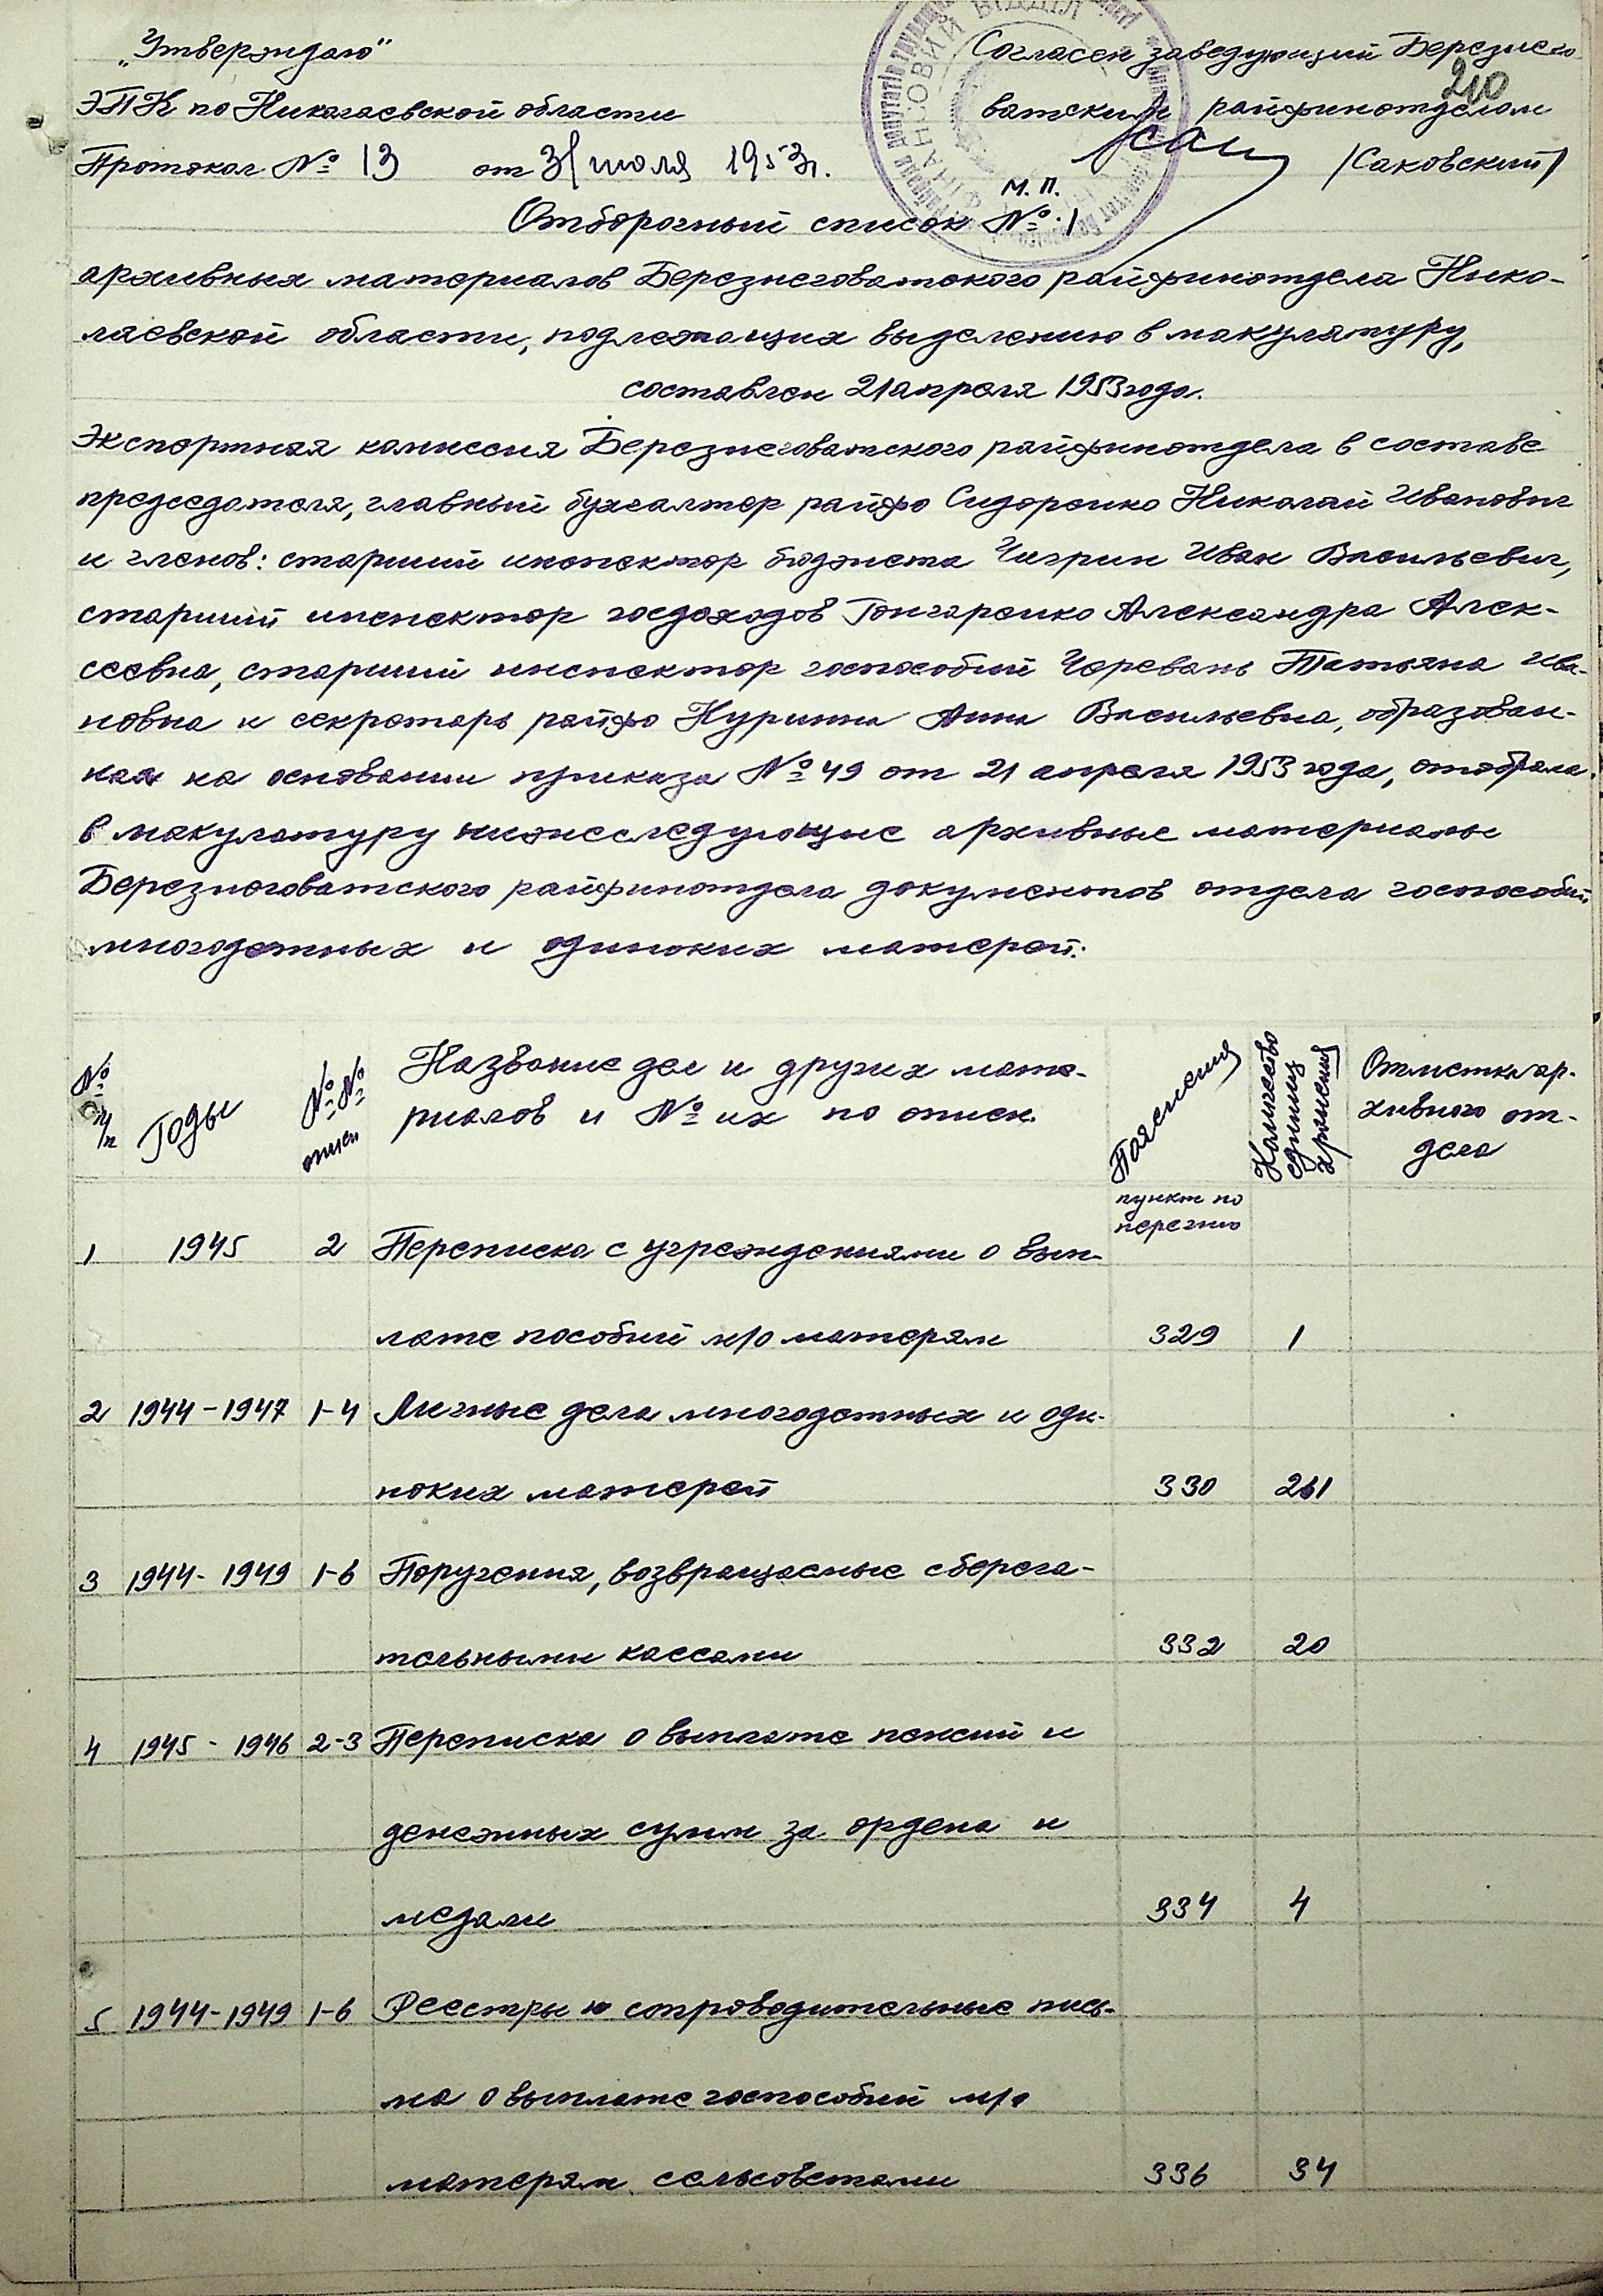 „Утверждаю"
Согласен заведующий Березнего-
210
ЭПК по Николаевской области
ватским райфинотделом
Протокол № 13 от 31 июля 1953 г.
/Саковский/
М. П.
Отборочный список № 1
архивных материалов Березнеговатского райфинотдела Нико-
лаевской области, подлежащих выделению в макулатуру,
составлен 21 апреля 1953 года.
Экспертная комиссия Березнеговатского райфинотдела в составе
председателя, главный бухгалтер райфо Сидоренко Николай Иванович
и членов: старший инспектор бюджета Чигрин Иван Васильевич,
старший инспектор госдоходов Гончаренко Александра Алек-
сеевна, старший инспектор госпособий Черевань Татьяна Ива-
новна и секретарь райфо Куринна Анна Васильевна, образован-
ная на основании приказа № 49 от 21 апреля 1953 года, отобрала
в макулатуру нижеследующие архивные материалы
Березнеговатского райфинотдела документов отдела госпособий
многодетных и одиноких матерей:
№ п/п
Годы
№№ описи
Название дел и других мате-
риалов и № их по описи.
Пояснения
Количество единиц хранения
Отметка ар-
хивного от-
дела
пункт по
перечню
1 1945 2 Переписка с учреждениями о вып-
лате пособий м/о матерям 329 1
2 1944-1947 1-4 Личные дела многодетных и оди-
ноких матерей 330 261
3 1944-1949 1-6 Поручения, возвращаемые сберега-
тельными кассами 332 20
4 1945-1946 2-3 Переписка о выплате пенсий и
денежных сумм за ордена и
медали 334 4
5 1944-1949 1-6 Реестры и сопроводительные пись-
ма о выплате госпособий м/о
матерям сельсоветами 336 34